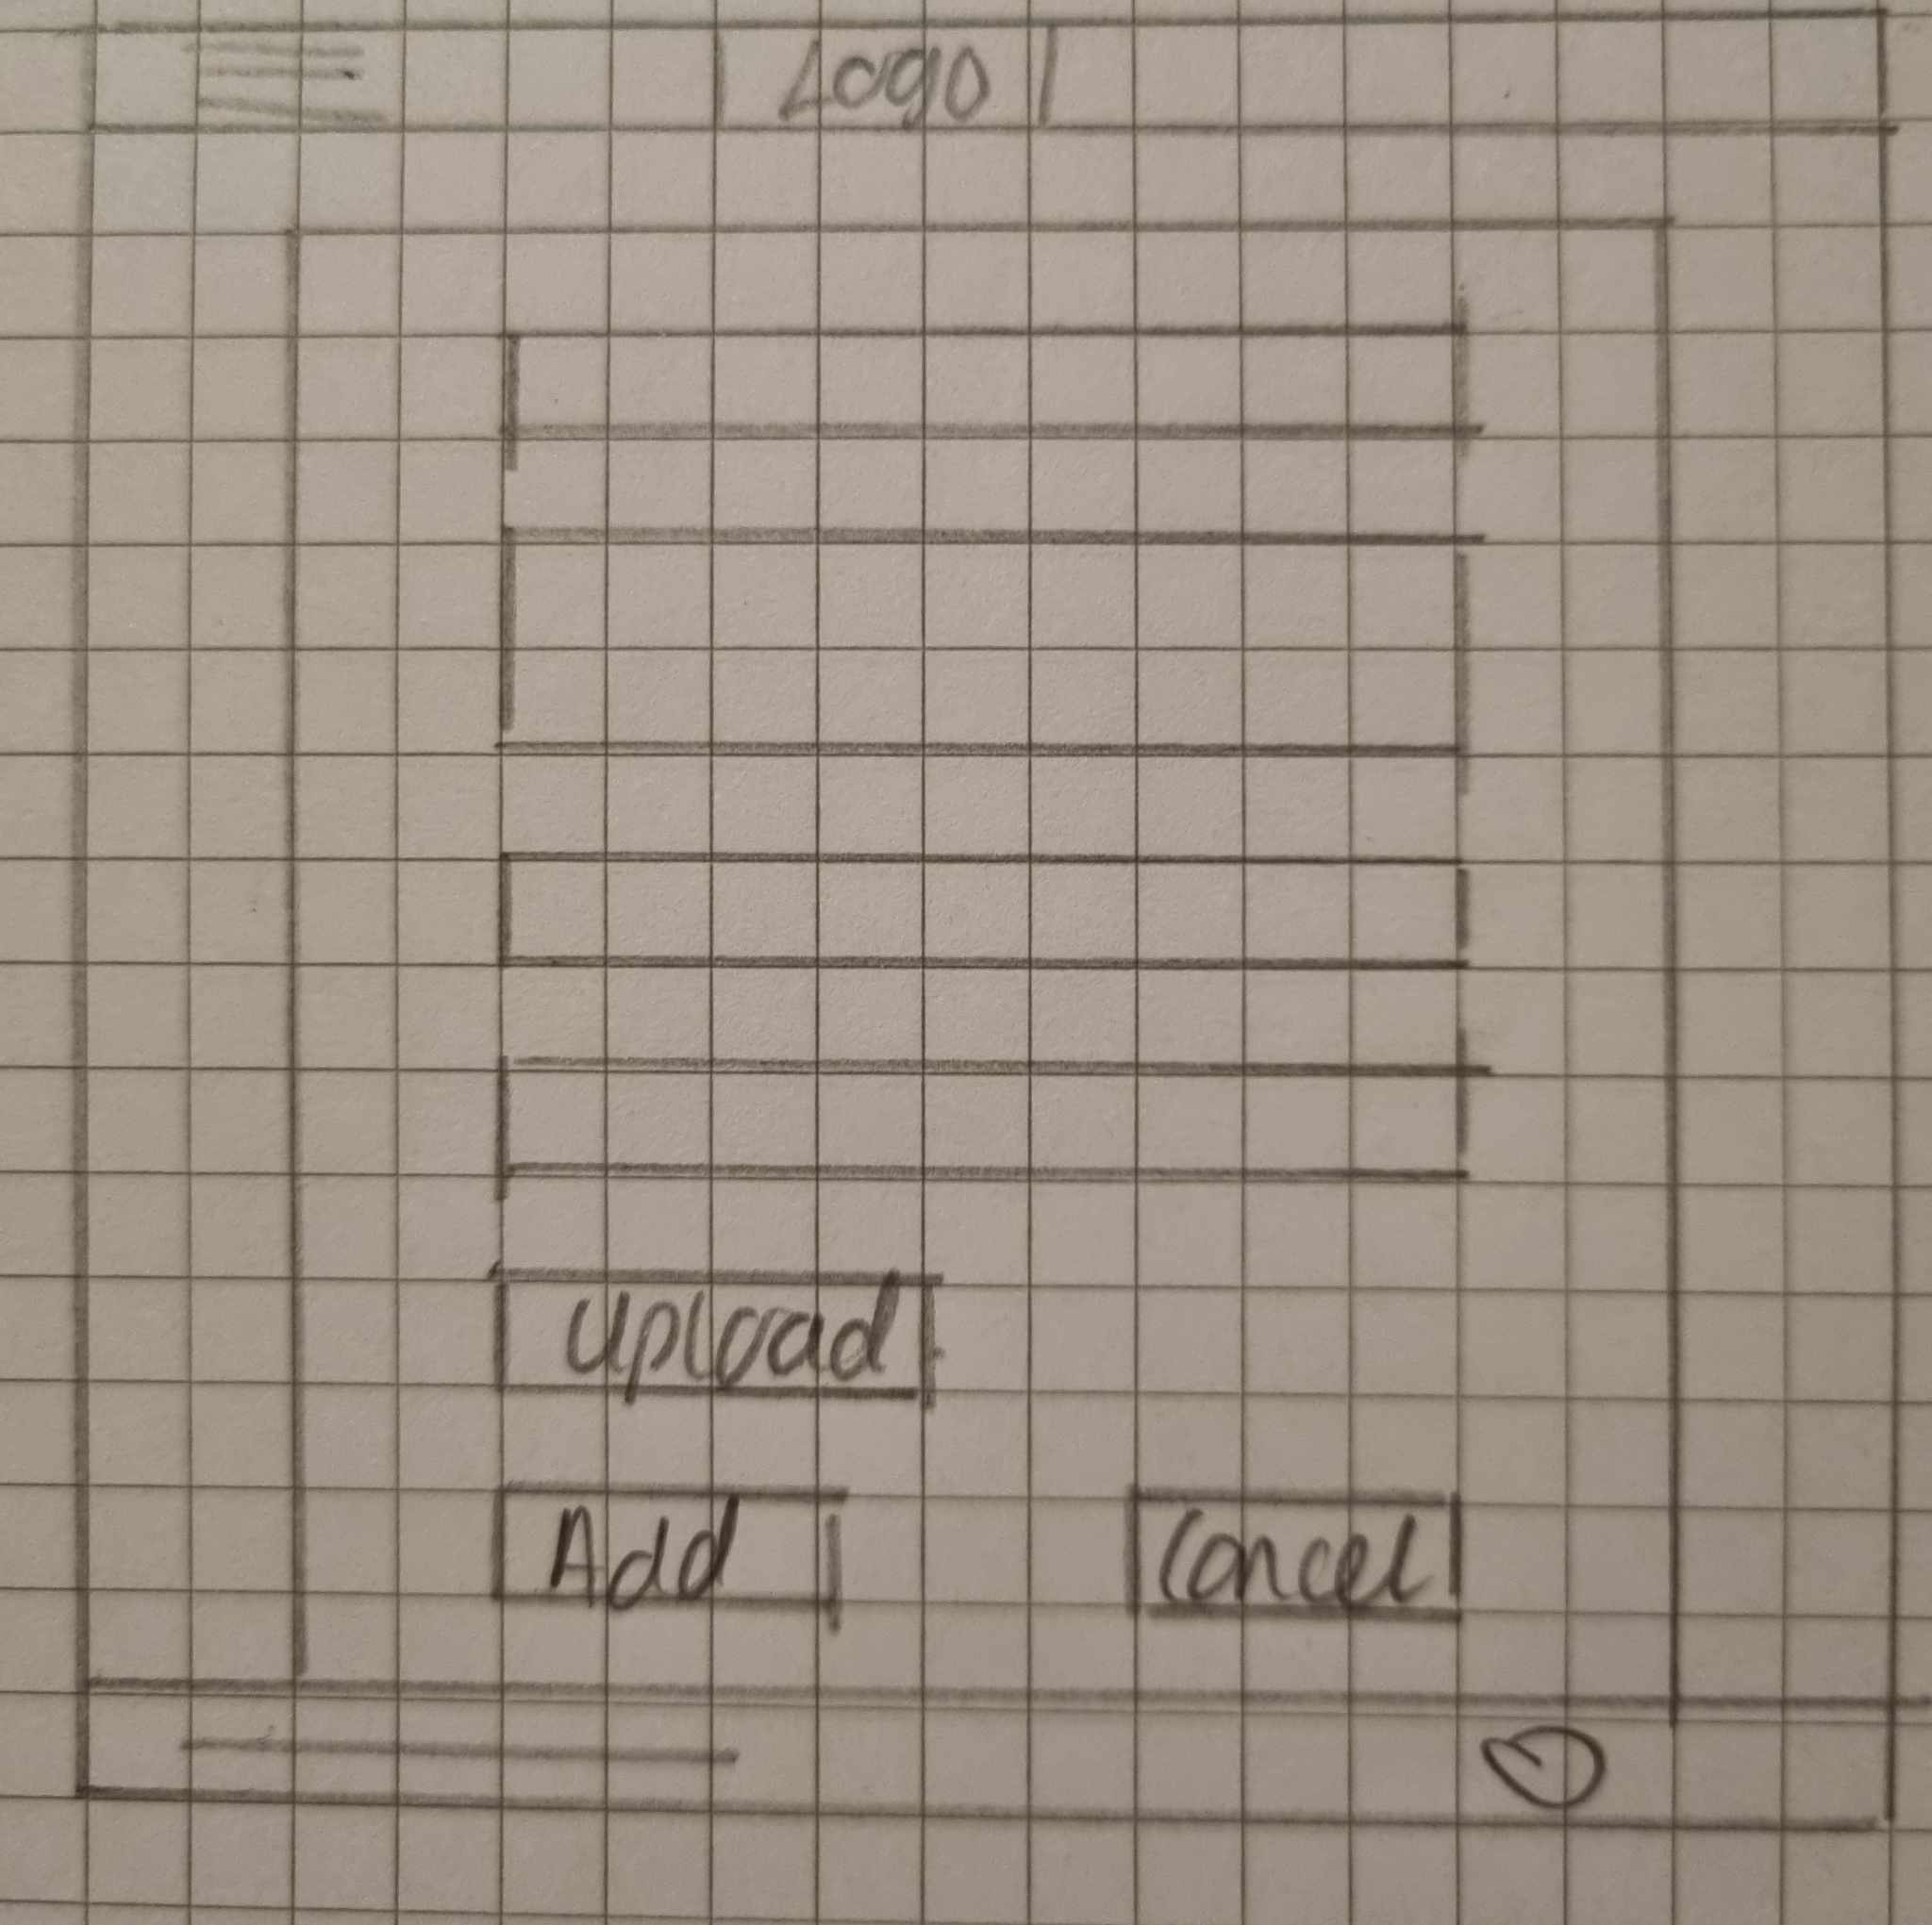 Logo
Upload
Add
Cancel